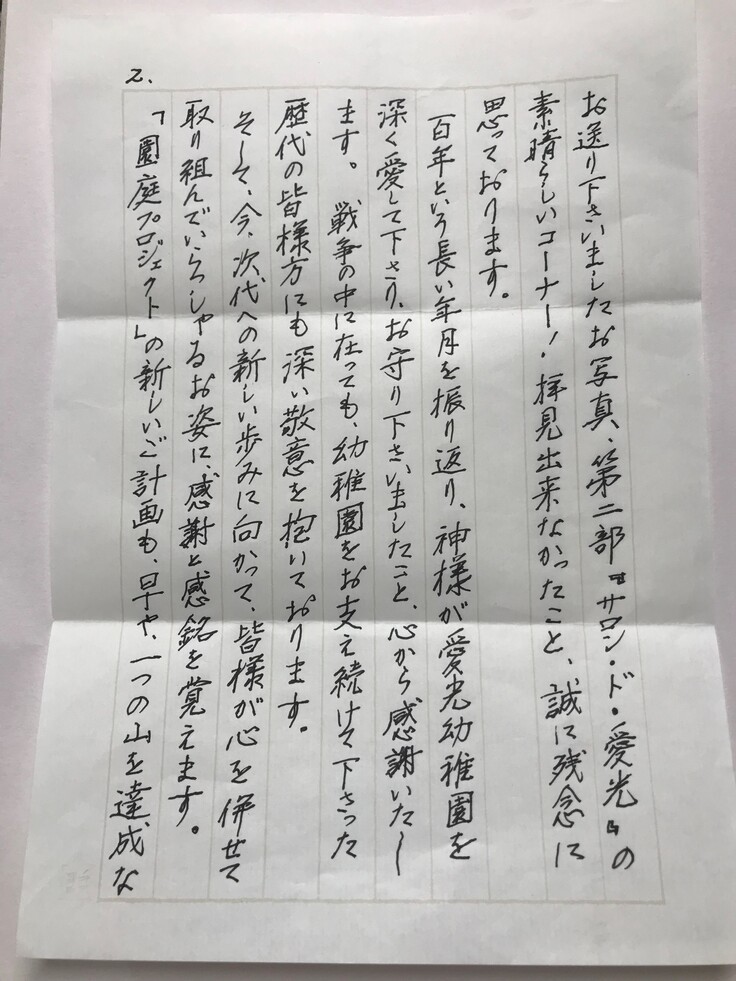 2.
お送り下さいましたお写真、第二部『サロン・ド・愛光』の
素晴らしいコーナー！拝見出来なかったこと、誠に残念に
思っております。
百年という長い年月を振り返り、神様が愛光幼稚園を
深く愛して下さり、お守り下さいましたこと、心から感謝いたし
ます。戦争の中に在っても、幼稚園をお支え続けて下さった
歴代の皆様方にも深い敬意を抱いております。
そして、今、次代への新しい歩みに向かって、皆様が心を併せて
取り組んでいらっしゃるお姿に、感謝と感銘を覚えます。
「園庭プロジェクト」の新しいご計画も、早や、一つの山を達成な